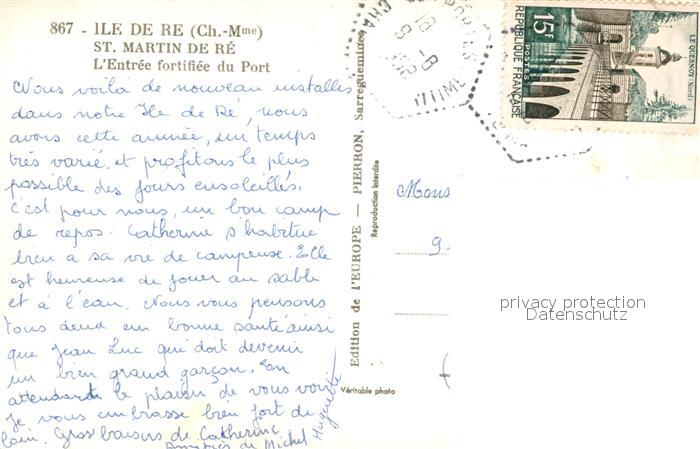 867 - ILE DE RE (Ch.-Mme)
ST. MARTIN DE RÉ
L'Entrée fortifiée du Port
Nous voilà de nouveau installés
dans notre Ile de Ré, nous
avons cette année, un temps
très varié et profitons le plus
possible des jours ensoleillés.
C'est pour nous, un bon camp
de repos. Catherine s'habitue
bien à sa vie de campeuse. Elle
est heureuse de jouer au sable
et à l'eau. Nous vous pensons
tous deux en bonne santé ainsi
que Jean Luc qui doit devenir
un bien grand garçon. En
attendant le plaisir de vous voir
je vous embrasse bien fort de
loin. Gros baisers de Catherine
Amitiés de Michel
Huguette
Edition de l'EUROPE — PIERRON, Sarreguemines
Reproduction interdite
Véritable photo
15F
REPUBLIQUE FRANÇAISE
POSTES
LE QUESNOY (Nord)
18
9-8
Mons
9
privacy protection
Datenschutz